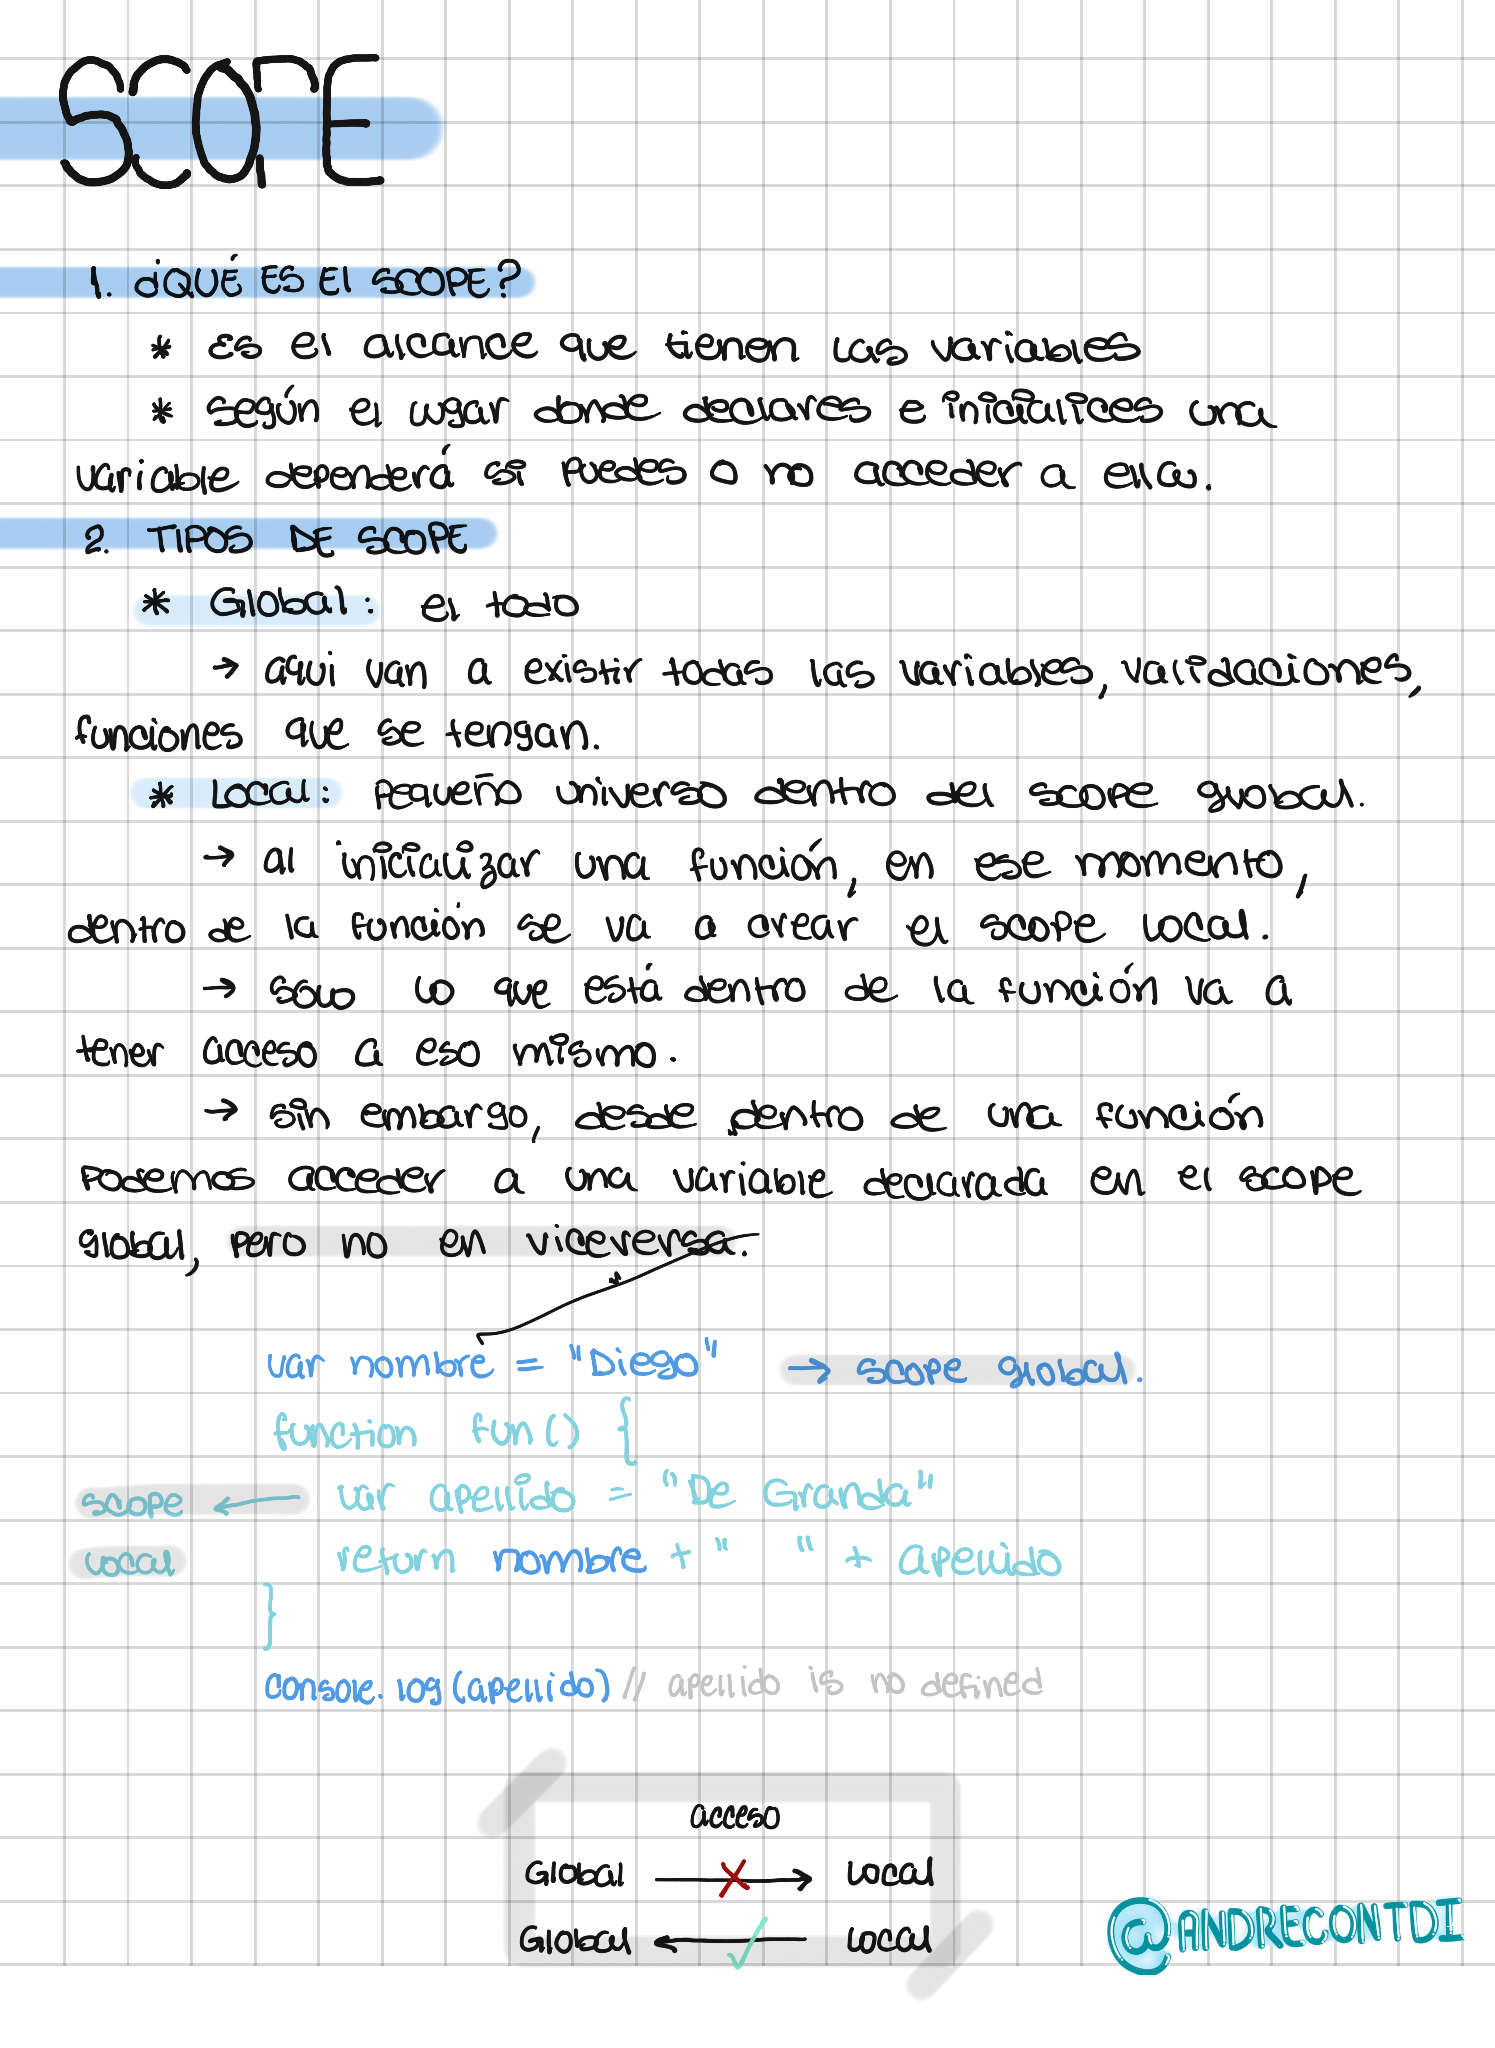 SCOPE
1. ¿QUÉ ES El SCOPE?
* Es el alcance que tienen las variables
* según el lugar donde declares e inicialices una
variable dependerá si puedes o no acceder a ella.
2. TIPOS DE SCOPE
* Global: el todo
→ aqui van a existir todas las variables, validaciones,
funciones que se tengan.
* Local: Pequeño universo dentro del scope global.
→ al inicializar una función, en ese momento,
dentro de la función se va a crear el scope local.
→ solo lo que está dentro de la función va a
tener acceso a eso mismo.
→ sin embargo, desde dentro de una función
Podemos acceder a una variable declarada en el scope
global, pero no en viceversa.
var nombre = "Diego" → scope global.
function fun() {
scope ← var apellido = "De Granda"
local return nombre + " " + apellido
}
console.log(apellido) // apellido is no defined
acceso
Global → Local
Global ← Local
@ANDRECONTDI